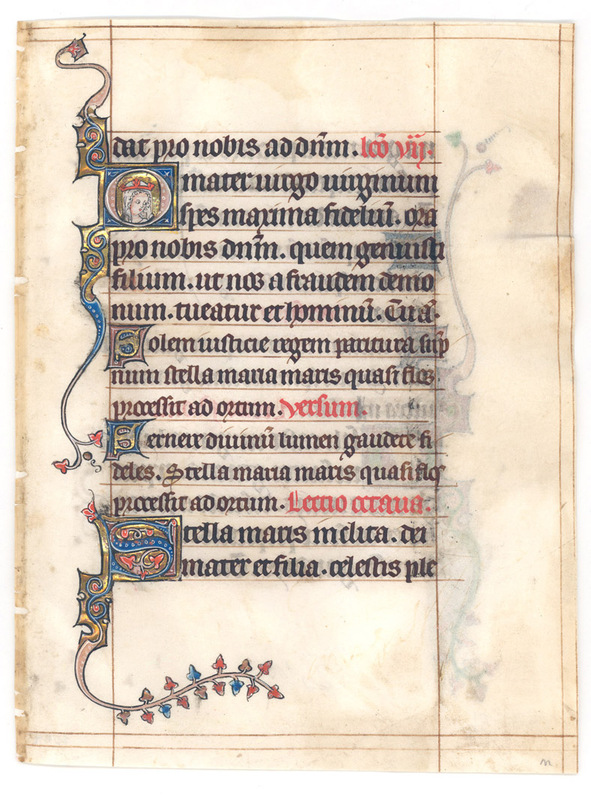 dat pro nobis ad dn̄m. lc̄o vij.
O mater uirgo uirginum
spes maxima fideliū. ora
pro nobis dn̄m. quem genuisti
filium. ut nos a fraudem demo
num. tueatur et hominū. Tu a.
Solem iusticie regem paritura sup̄
num stella maria maris quasi flos
processit ad ortum. versum.
Cernere diuinū lumen gaudete fi
deles. Stella maria maris quasi flos
processit ad ortum. Lectio octaua.
Stella maris inclita. dei
mater et filia. celestis ple